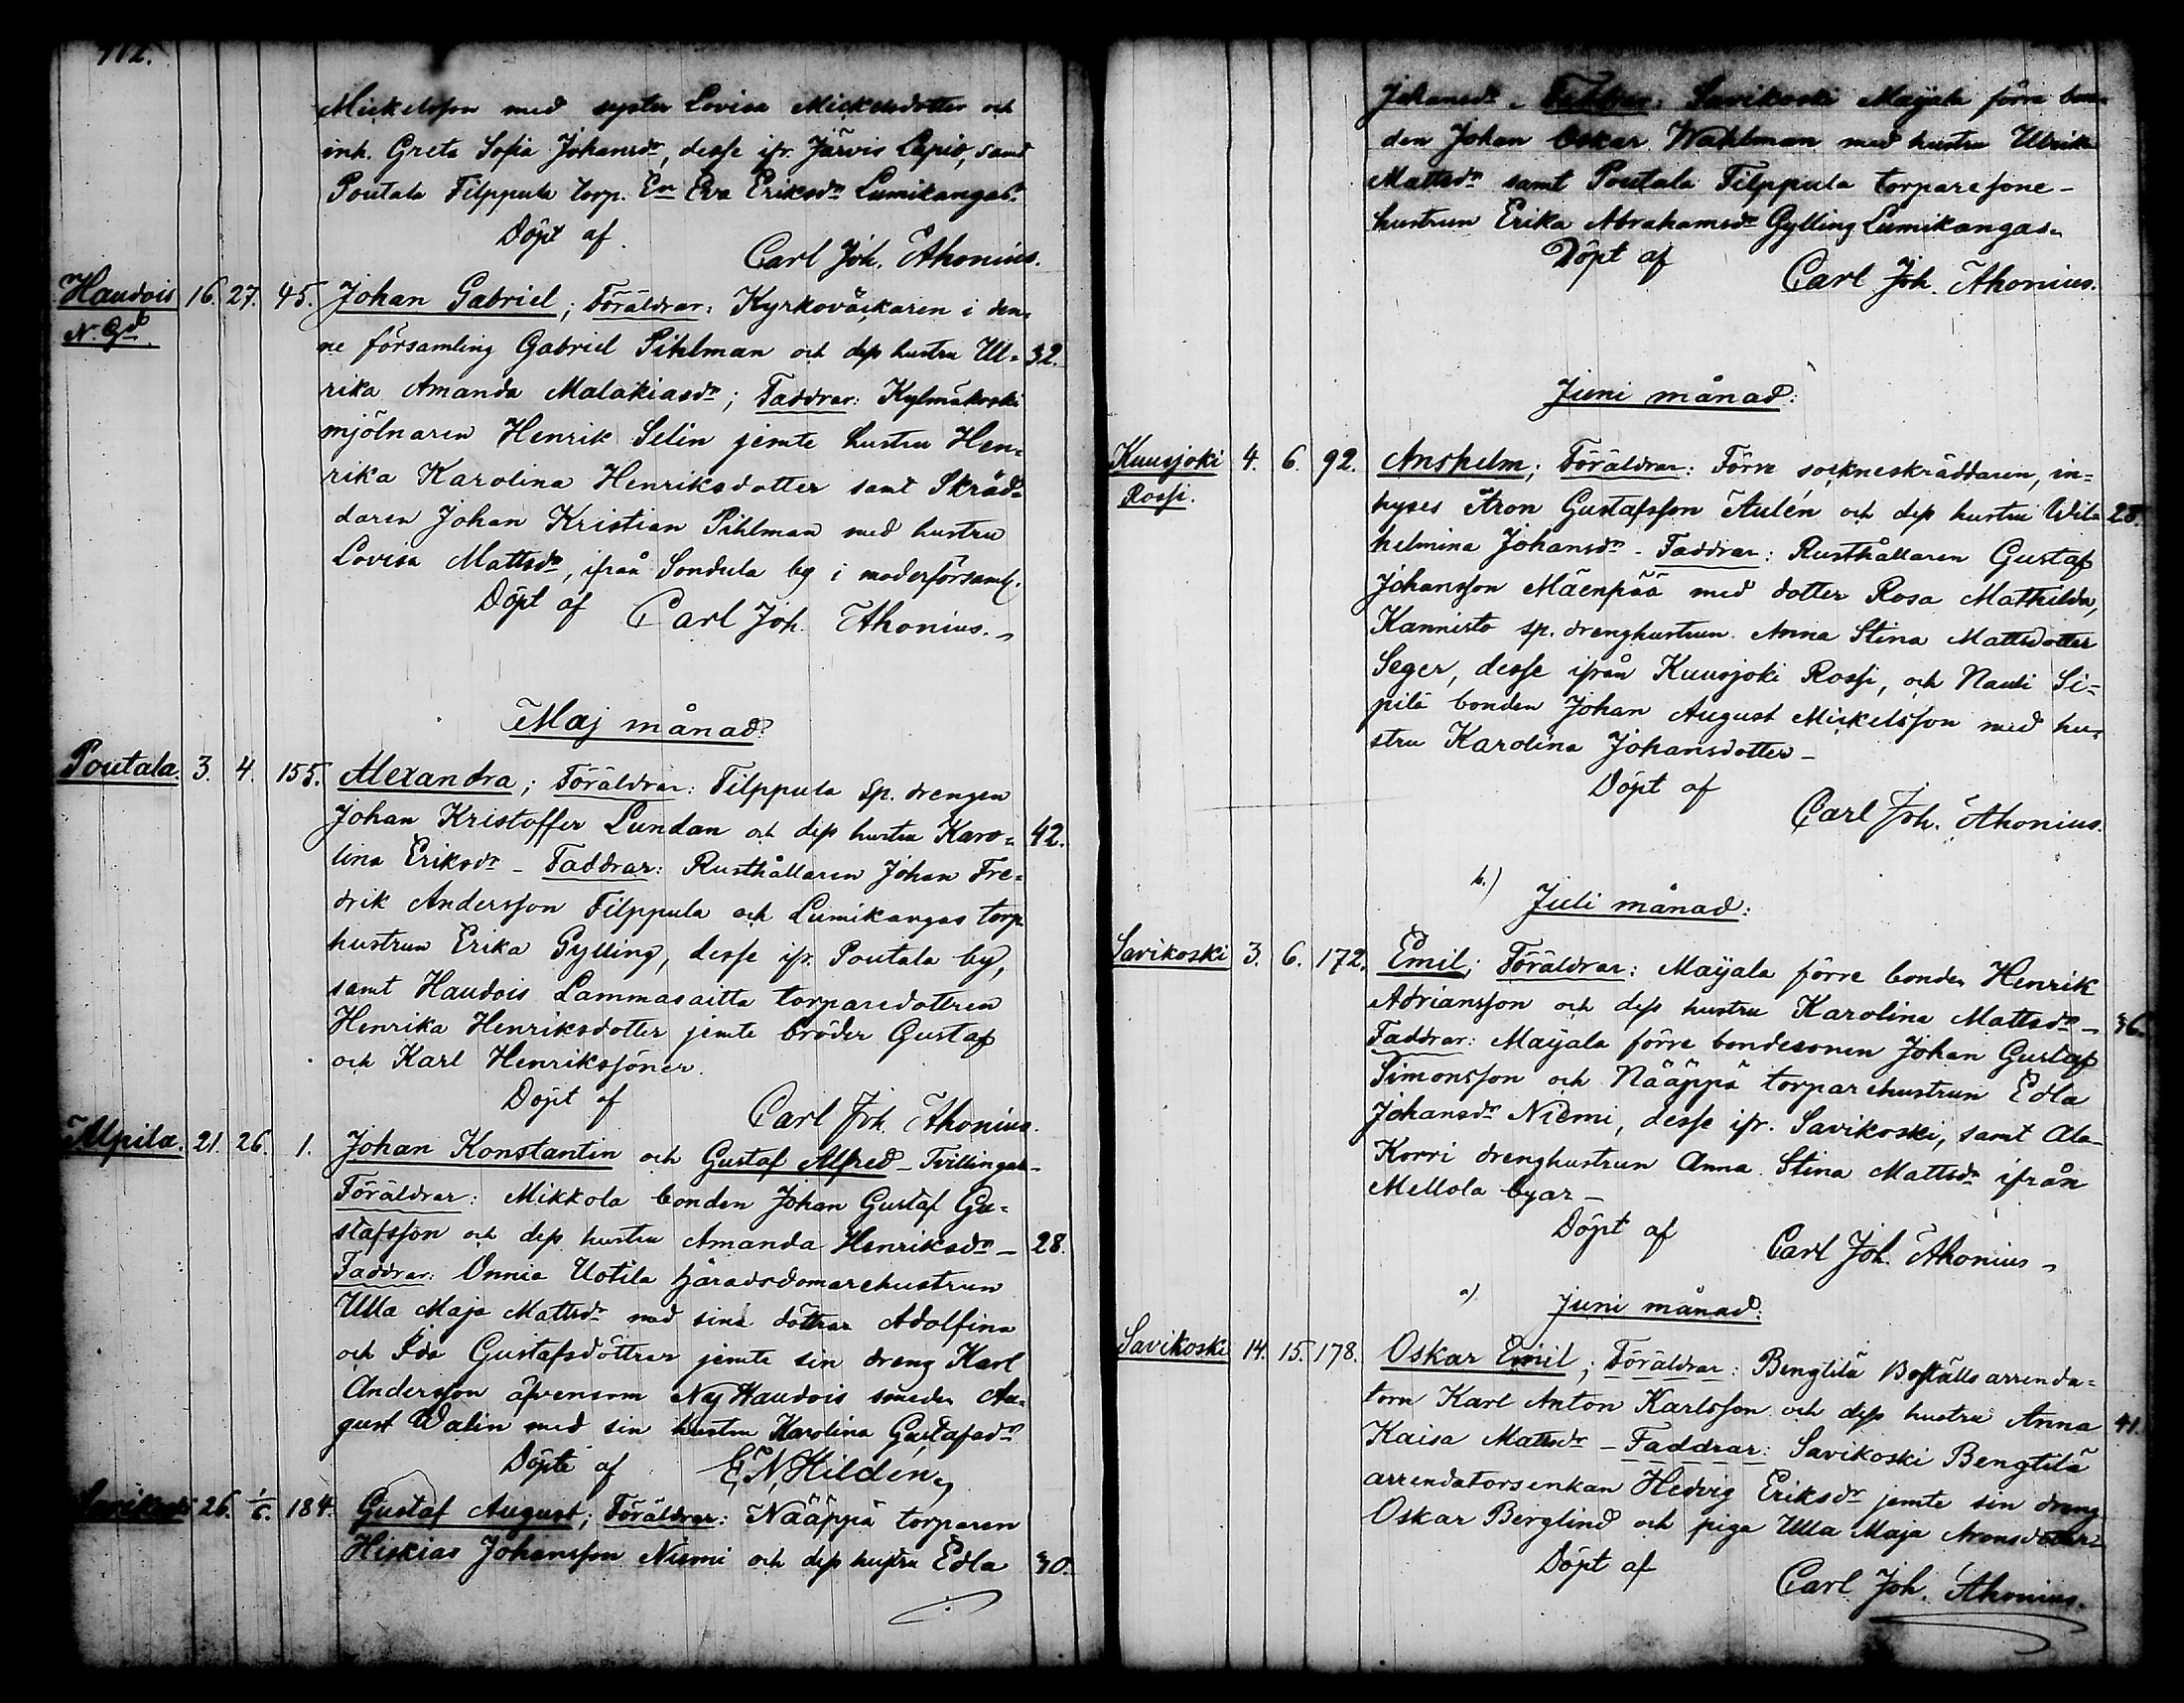 112.
Mickelsson med syster Lovisa Mickelsdotter och
inh. Greta Sofia Johansdr, desse ifr. Järvis Lapio, samt
Poutala Filppula torp. En Eva Eriksdr Lumikangas.
Döpt af
Carl Joh. Ahonius.
Haudois 16. 27. 45. Johan Gabriel; Föräldrar: Kyrkoväckaren i den=
N. Gd. ne församling Gabriel Pihlman och dess hustru Ul= 32.
rika Amanda Malakiasdr; Faddrar: Kylmäkoski
mjölnaren Henrik Selin jemte hustru Hen=
rika Karolina Henriksdotter samt Skräd=
daren Johan Kristian Pihlman med hustru
Lovisa Mattsdr, ifrån Sondula by i moderförsaml.
Döpt af Carl Joh. Ahonius.
Maj månad:
Poutala. 3. 4. 155. Alexandra; Föräldrar: Filppula Sp. drengen
Johan Kristoffer Lundan och dess hustru Karo= 42.
lina Eriksdr - Faddrar: Rusthållaren Johan Fre=
drik Andersson Filppula och Lumikangas torp.
hustrun Erika Gylling, desse ifr. Poutala by,
samt Haudois Lammasaitta torparedottren
Henrika Henriksdotter jemte bröder Gustaf
och Karl Henrikssöner.
Döpt af
Carl Joh. Ahonius.
Alpila. 21. 26. 1. Johan Konstantin och Gustaf Alfred - Tvillingar -
Föräldrar: Mikkola bonden Johan Gustaf Gu=
stafsson och dess hustru Amanda Henriksdr - 28.
Faddrar: Onnia Uotila häradsdomarehustrun
Ulla Maja Mattsdr med sina döttrar Adolfina
och Ida Gustafsdöttrar jemte sin dreng Karl
Andersson äfvensom Naj Haudois smeden Au=
gust Walin med sin hustru Karolina Gustafsdr
Döpte af E. N. Hildén.
Savikoski 26. 1/6. 184. Gustaf August; Föräldrar: Nääppä torparen
Hiskias Johansson Niemi och dess hustru Edla 30.
Johansdr - Faddrar: Savikoski Mayala förre bon=
den Johan Oskar Wahlman med hustru Ulrika
Mattsdr samt Poutala Filppula torparesone-
hustrun Erika Abrahamsdr Gylling Lumikangas.
Döpt af
Carl Joh. Ahonius.
Juni månad:
Kuusjoki 4. 6. 92. Anshelm; Föräldrar: Förre sockneskräddaren, in=
Rossi. hyses Aron Gustafsson Aulén och dess hustru Wil= 28.
helmina Johansdr - Faddrar: Rusthållaren Gustaf
Johansson Mäenpää med dotter Rosa Mathilda,
Kannisto sp. drenghustrun Anna Stina Mattsdotter
Seger, desse ifrån Kuusjoki Rossi, och Nauti Si=
pilä bonden Johan August Mickelsson med hu=
stru Karolina Johansdotter -
Döpt af
Carl Joh. Ahonius.
b.) Juli månad:
Savikoski 3. 6. 172. Emil; Föräldrar: Mayala förre bonden Henrik
Adriansson och dess hustru Karolina Mattsdr - 36.
Faddrar: Mayala förre bondesonen Johan Gustaf
Simonsson och Nääppä torparehustrun Edla
Johansdr Niemi, desse ifr. Savikoski, samt Ala-
Korri drenghustrun Anna Stina Mattsdr ifrån
Mellola byar -
Döpt af
Carl Joh. Ahonius -
a) Juni månad:
Savikoski 14. 15. 178. Oskar Emil; Föräldrar: Bengtilä Boställsarrenda=
torn Karl Anton Karlsson och dess hustru Anna 41.
Kaisa Mattsdr - Faddrar: Savikoski Bengtilä
arrendatorsenkan Hedvig Eriksdr jemte sin dreng
Oskar Berglind och piga Ulla Maja Aronsdotter
Döpt af
Carl Joh. Ahonius.